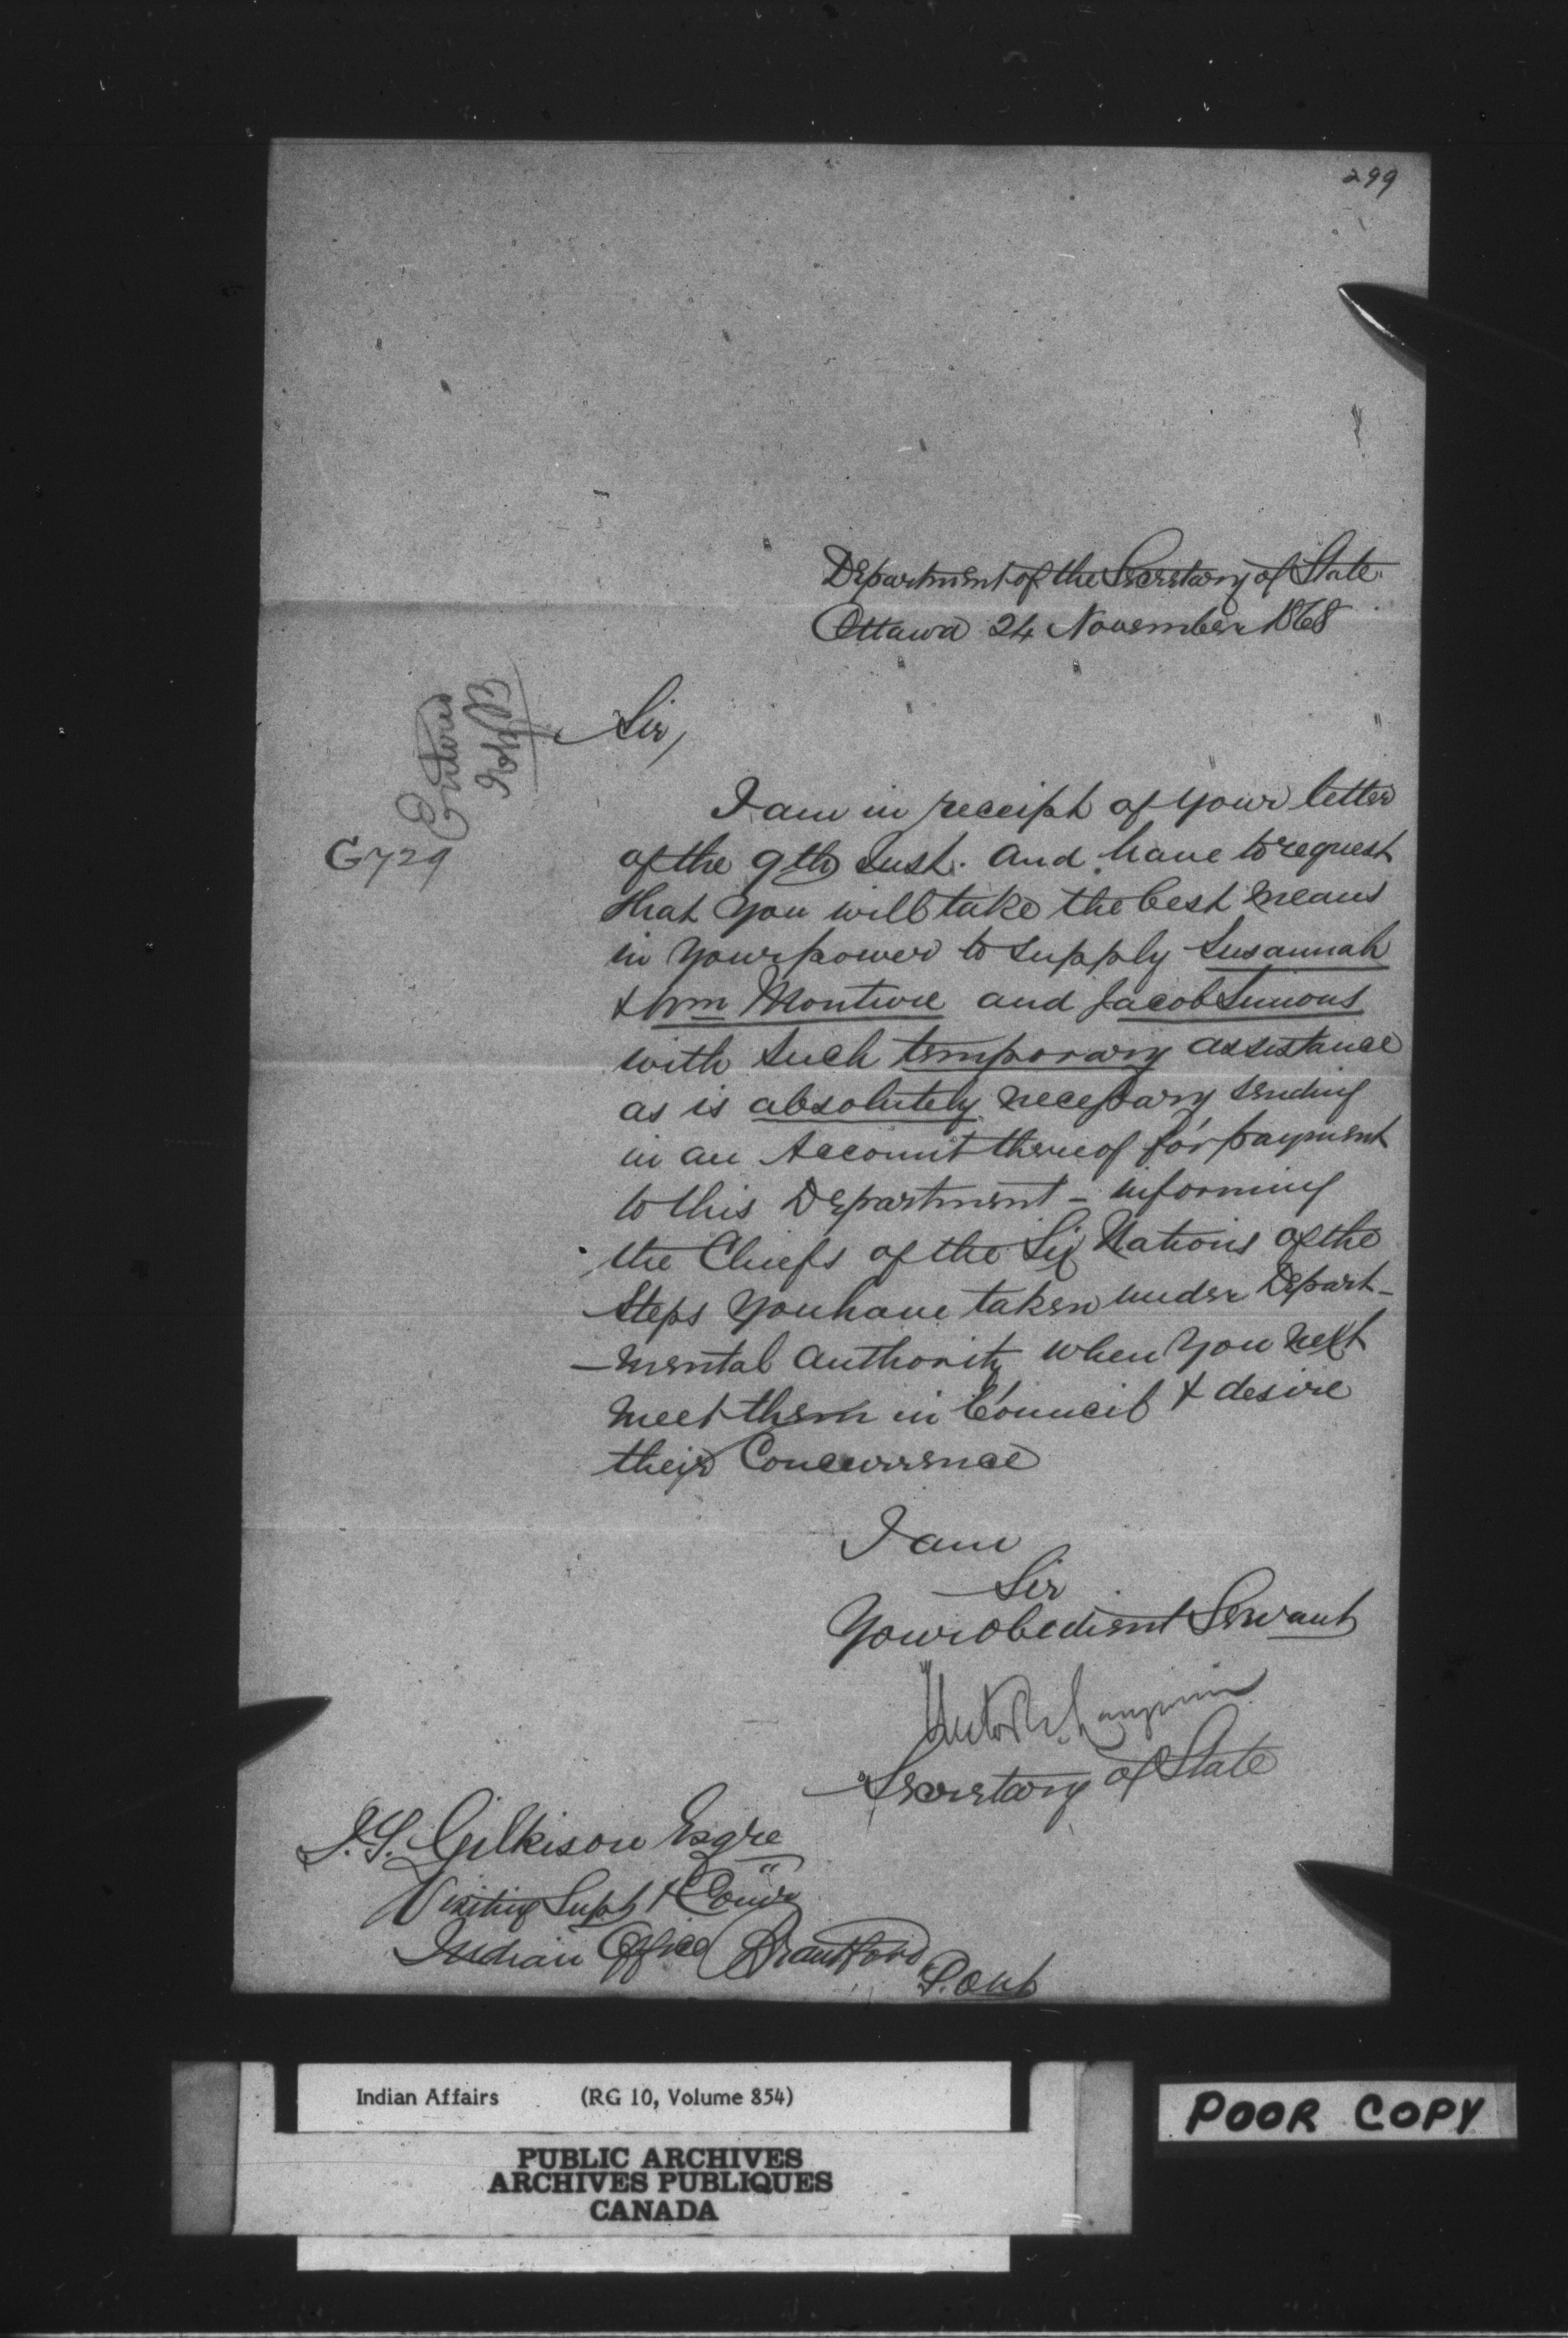 299
Department of the Secretary of State
Ottawa 24 November 1868
Entered
Sir,
G729
I am in receipt of your letter
of the 9th Inst. and have to request
that you will take the best means
in your power to supply Susannah
& Wm Monture and Jacob Simons
with such temporary assistance
as is absolutely necessary sending
in an Account thereof for payment
to this Department - informing
the Chiefs of the Six Nations of the
Steps you have taken under Depart-
-mental authority when you next
meet them in Council & desire
their Concurrence
I am
Sir
Your obedient Servant
Hector L. Langevin
Secretary of State
J.T. Gilkison Esqre
Visiting Supt & Comr
Indian Office Brantford
P. Ont
Indian Affairs (RG 10, Volume 854)
PUBLIC ARCHIVES
ARCHIVES PUBLIQUES
CANADA
POOR COPY